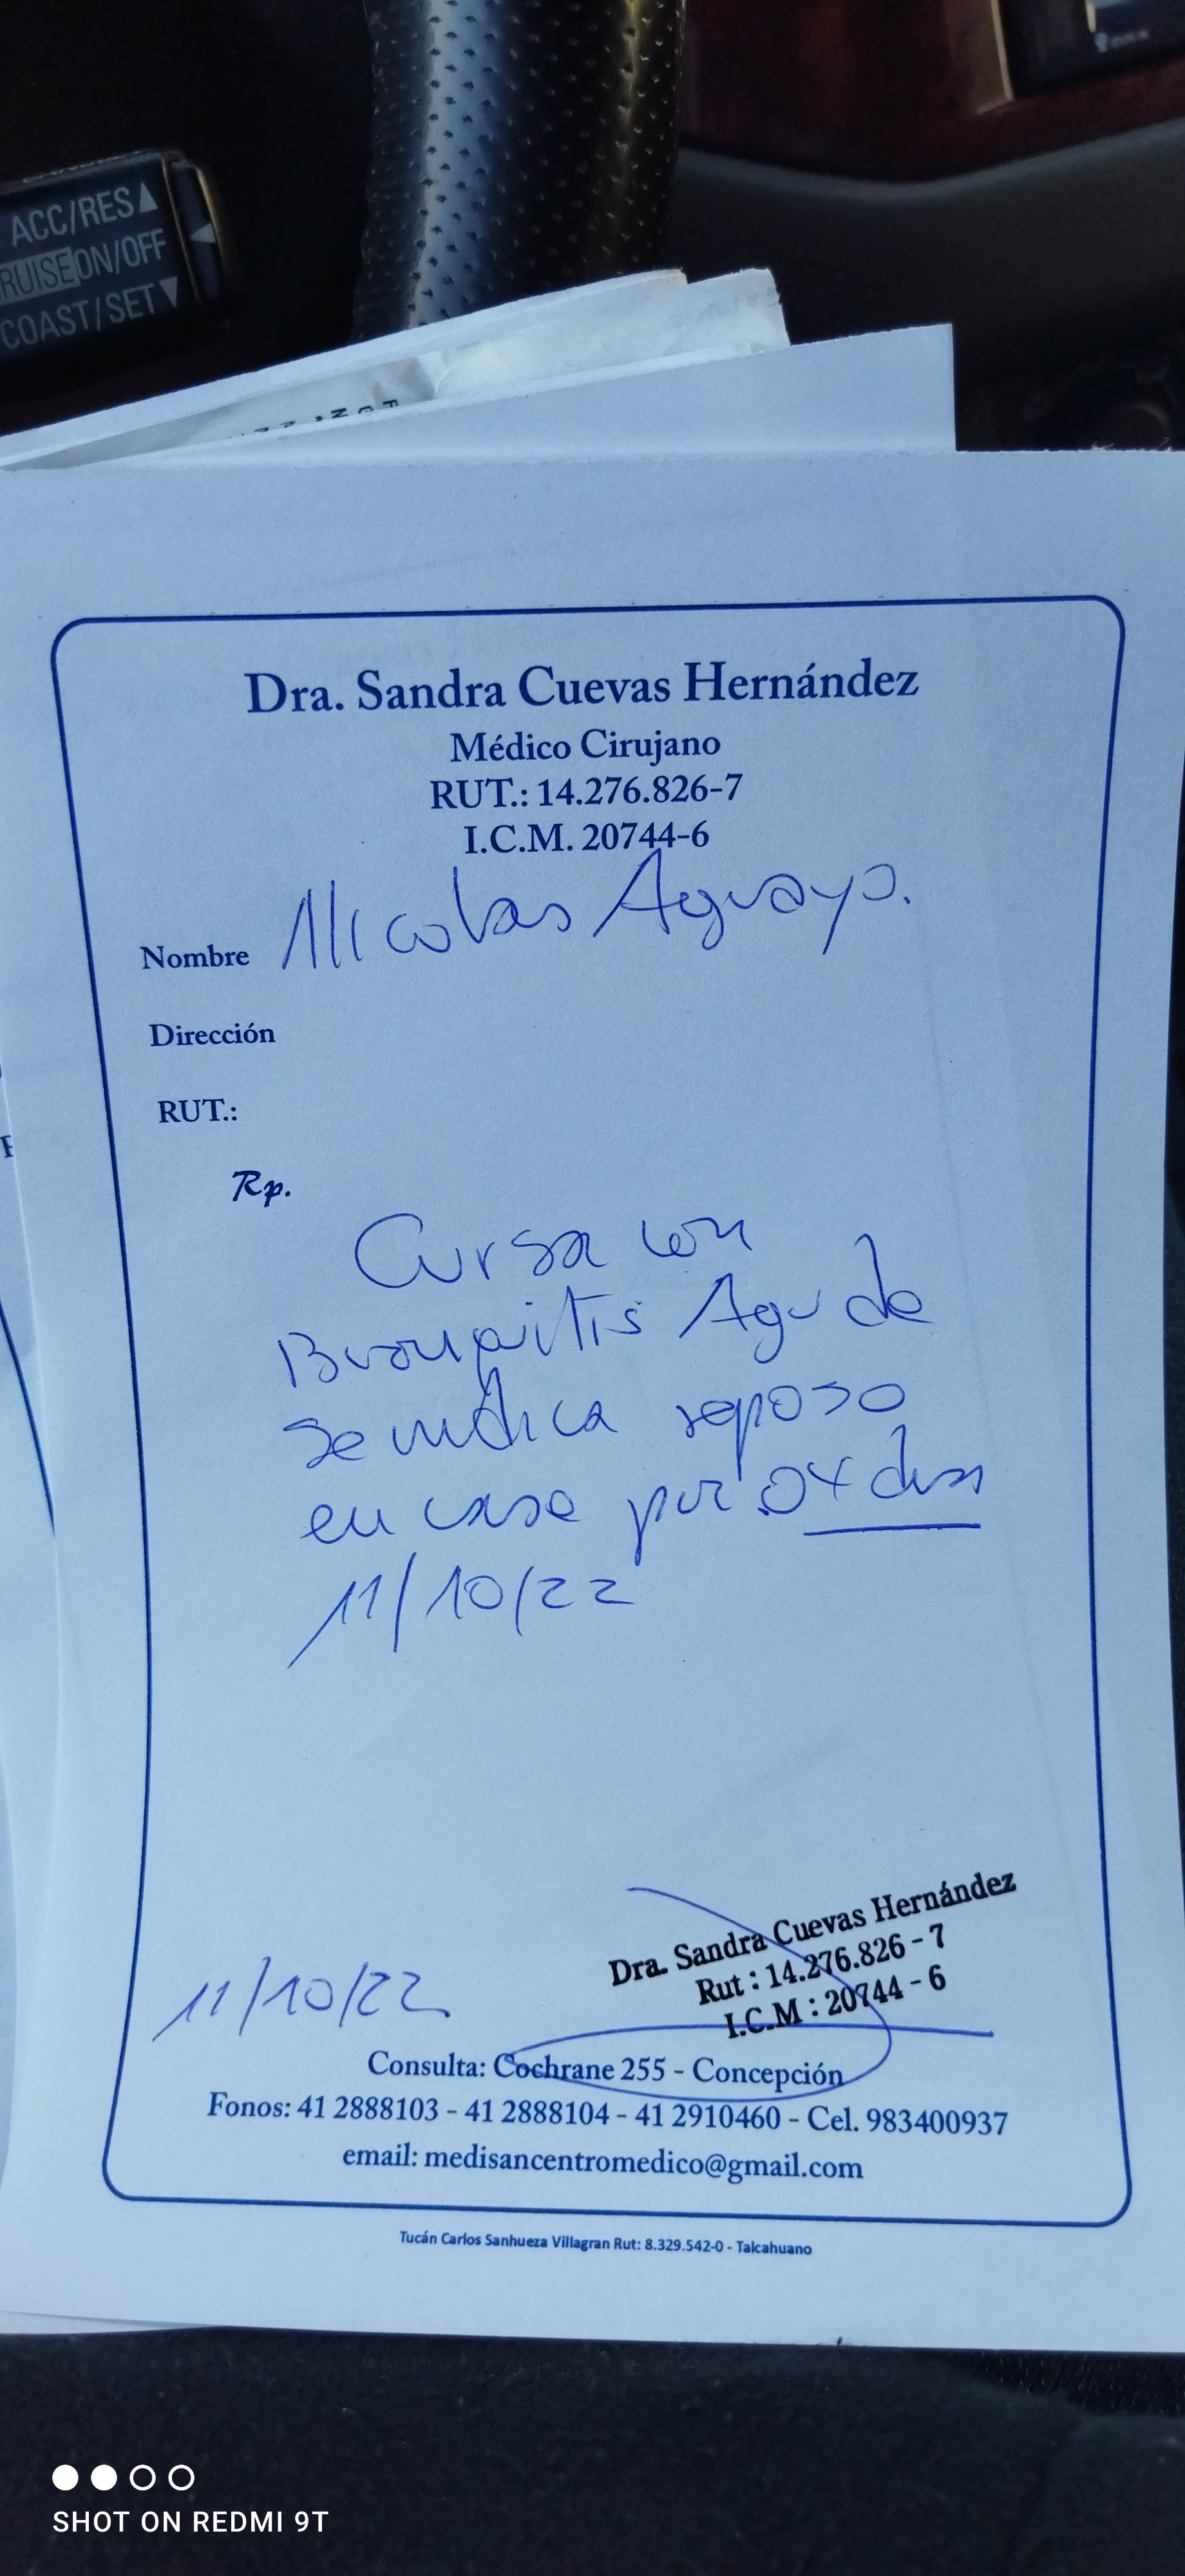 ACC/RES▲
RUISE ON/OFF
COAST/SET▼
Dra. Sandra Cuevas Hernández
Médico Cirujano
RUT.: 14.276.826-7
I.C.M. 20744-6
Nombre Nicolas Aguayo.
Dirección
RUT.:
Rp.
Cursa con
Bronquitis Aguda
se indica reposo
en casa por 04 dias
11/10/22
Dra. Sandra Cuevas Hernández
Rut : 14.276.826 - 7
I.C.M : 20744 - 6
11/10/22
Consulta: Cochrane 255 - Concepción
Fonos: 41 2888103 - 41 2888104 - 41 2910460 - Cel. 983400937
email: medisancentromedico@gmail.com
Tucán Carlos Sanhueza Villagran Rut: 8.329.542-0 - Talcahuano
SHOT ON REDMI 9T